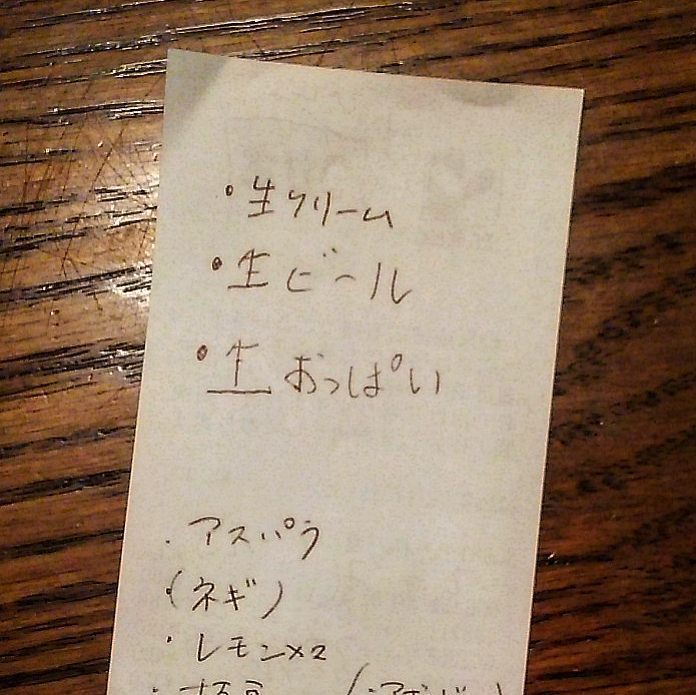 ・生クリーム
・生ビール
・生おっぱい
・アスパラ
(ネギ)
・レモン×2